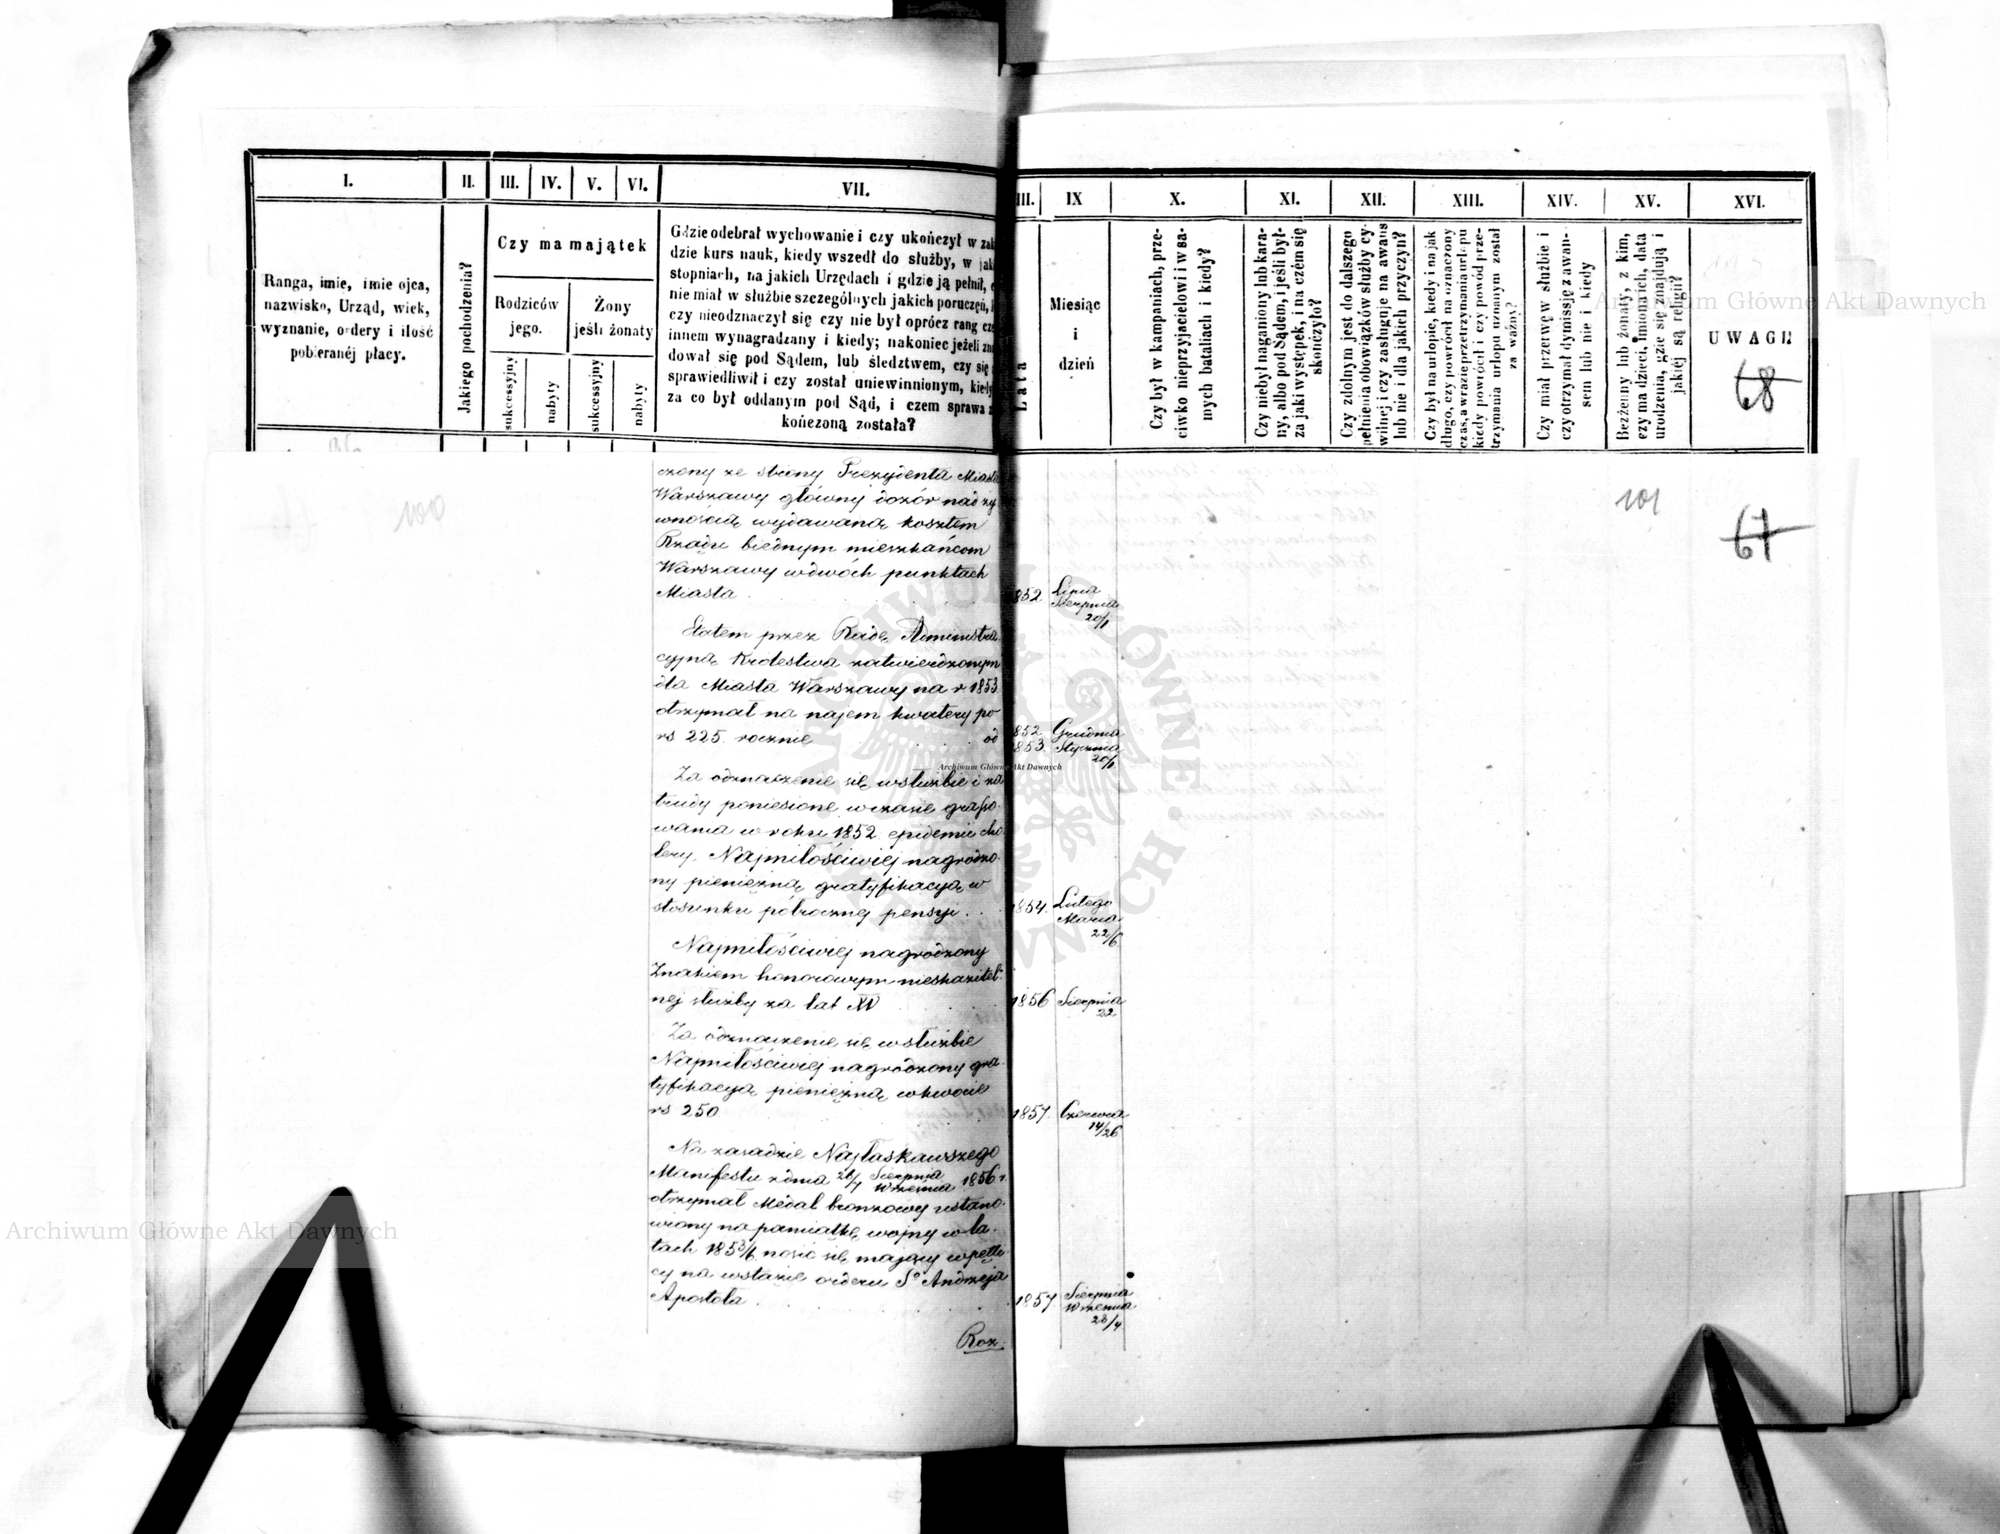 I.
II.
III.
IV.
V.
VI.
VII.
III.
IX
X.
XI.
XII.
XIII.
XIV.
XV.
XVI.
Ranga, imie, imie ojca,
nazwisko, Urząd, wiek,
wyznanie, ordery i ilość
pobieranéj płacy.
Jakiego pochodzenia?
Czy ma majątek
Rodziców
jego.
Żony
jeśli żonaty
sukcessyjny
nabyty
sukcessyjny
nabyty
Gdzie odebrał wychowanie i czy ukończył w zak
dzie kurs nauk, kiedy wszedł do służby, w jak
stopniach, na jakich Urzędach i gdzie ją pełnił,
nie miał w służbie szczególnych jakich poruczeń,
czy nieodznaczył się czy nie był oprócz rang cze
innem wynagradzany i kiedy; nakoniec jeżeli zna
dował się pod Sądem, lub śledztwem, czy się
sprawiedliwił i czy został uniewinnionym, kiedy
za co był oddanym pod Sąd, i czem sprawa
kończoną została?
Lata
Miesiąc
i
dzień
Czy był w kampaniach, prze-
ciwko nieprzyjacielowi i w sa-
mych bataliach i kiedy?
Czy niebył naganiony lub kara-
ny, albo pod Sądem, i jeśli był-
za jaki występek, i na czém się
skończyło?
Czy zdolnym jest do dalszego
pełnienia obowiązków służby cy-
wilnej i czy zasługuje na awans
lub nie i dla jakich przyczyn?
Czy był na urlopie, kiedy i na jak
długo, czy powrócił na oznaczony
czas, a w razie przetrzymania urlopu
kiedy powrócił i czy powód prze-
trzymania urlopu uznanym został
za ważny?
Czy miał przerwę w służbie i
czy otrzymał dymissję z awan-
sem lub nie i kiedy
Bezżenny lub żonaty, z kim,
czy ma dzieci, imionich, data
urodzenia, gdzie się znajdują i
jakiéj są religii?
UWAGI
68
100
101
67
czony ze strony Prezydenta Miasta
Warszawy główny dozór nad ży
wnością wydawaną kosztem
Rządu biednym mieszkańcom
Warszawy w dwóch punktach
Miasta
852 Lipca
Sierpnia
20/1
Etatem przez Radę Administra.
cyjną Królestwa zatwierdzonym
dla Miasta Warszawy na r 1853
otrzymał na najem kwatery po
rs 225 rocznie od
852 Grudnia
853 Stycznia
20/1
Za odznaczenie się w służbie i za
trudy poniesione w czasie grasso-
wania w roku 1852 epidemii cho
lery, Najmiłościwiej nagrodzo-
ny pieniężną gratyfikacyą w
stosunku półrocznej pensyi
1854. Lutego
Marca
22/6
Najmiłościwiej nagrodzony
Znakiem honorowym nieskazitel-
nej służby za lat XV
1856 Sierpnia
22
Za odznaczenie się w służbie
Najmiłościwiej nagrodzony gra-
tyfikacyą pieniężną w kwocie
rs 250
1857. Czerwca
14/26
Na zasadzie Najłaskawszego
Manifestu z dnia 26/7 Sierpnia Września 1856 r.
otrzymał Medal bronzowy ustano-
wiony na pamiątkę wojny w la-
tach 1853/6 nosić się mający w petli-
cy na wstażie orderu Sº Andrzeja
Apostoła
1857 Sierpnia
Września
23/4
Roz
Archiwum Główne Akt Dawnych
Archiwum Główne Akt Dawnych
Archiwum Główne Akt Dawnych
ARCHIWUM GŁÓWNE AKT DAWNYCH